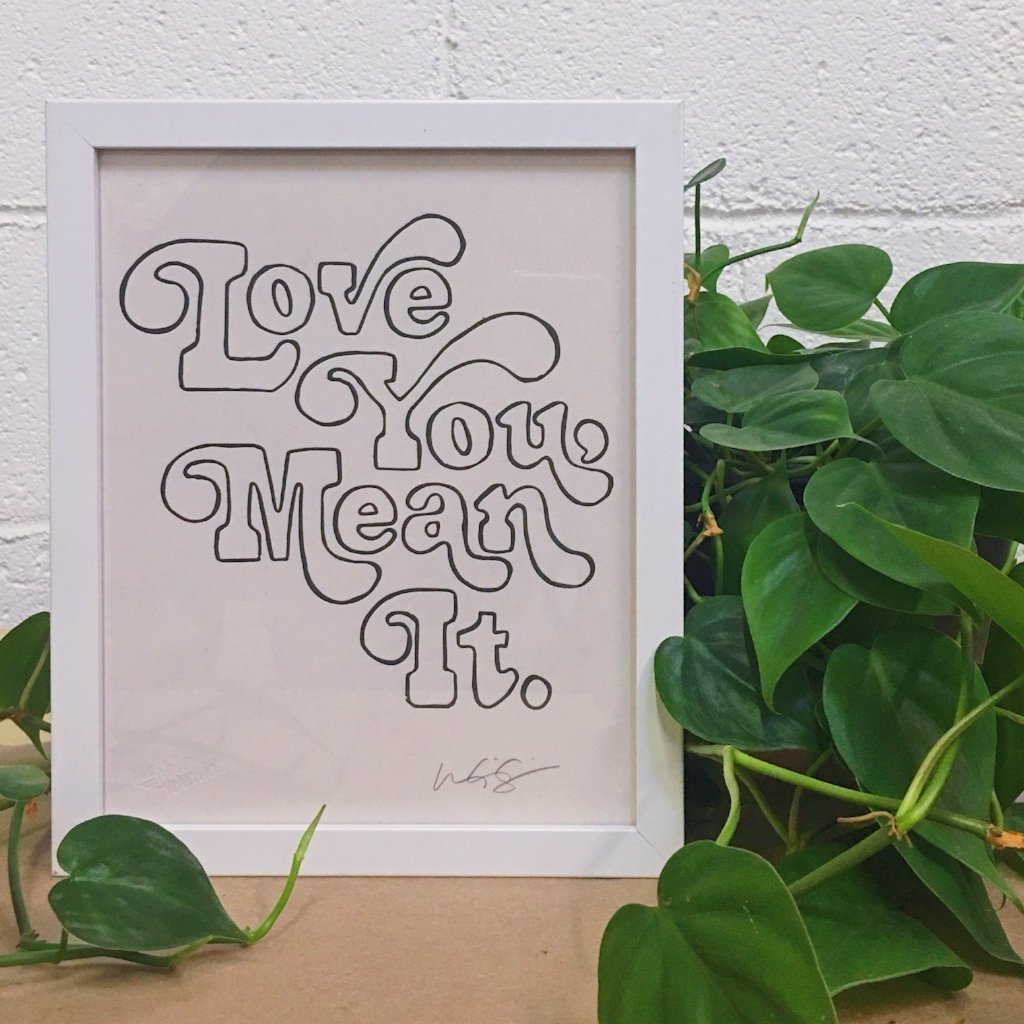 Love
You,
Mean
It.